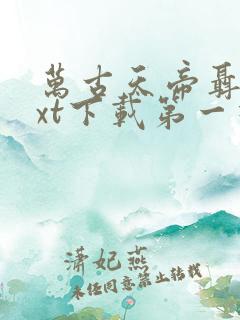 萬古天帝聶
xt下載第一
潇妃燕
未经同意禁止转载